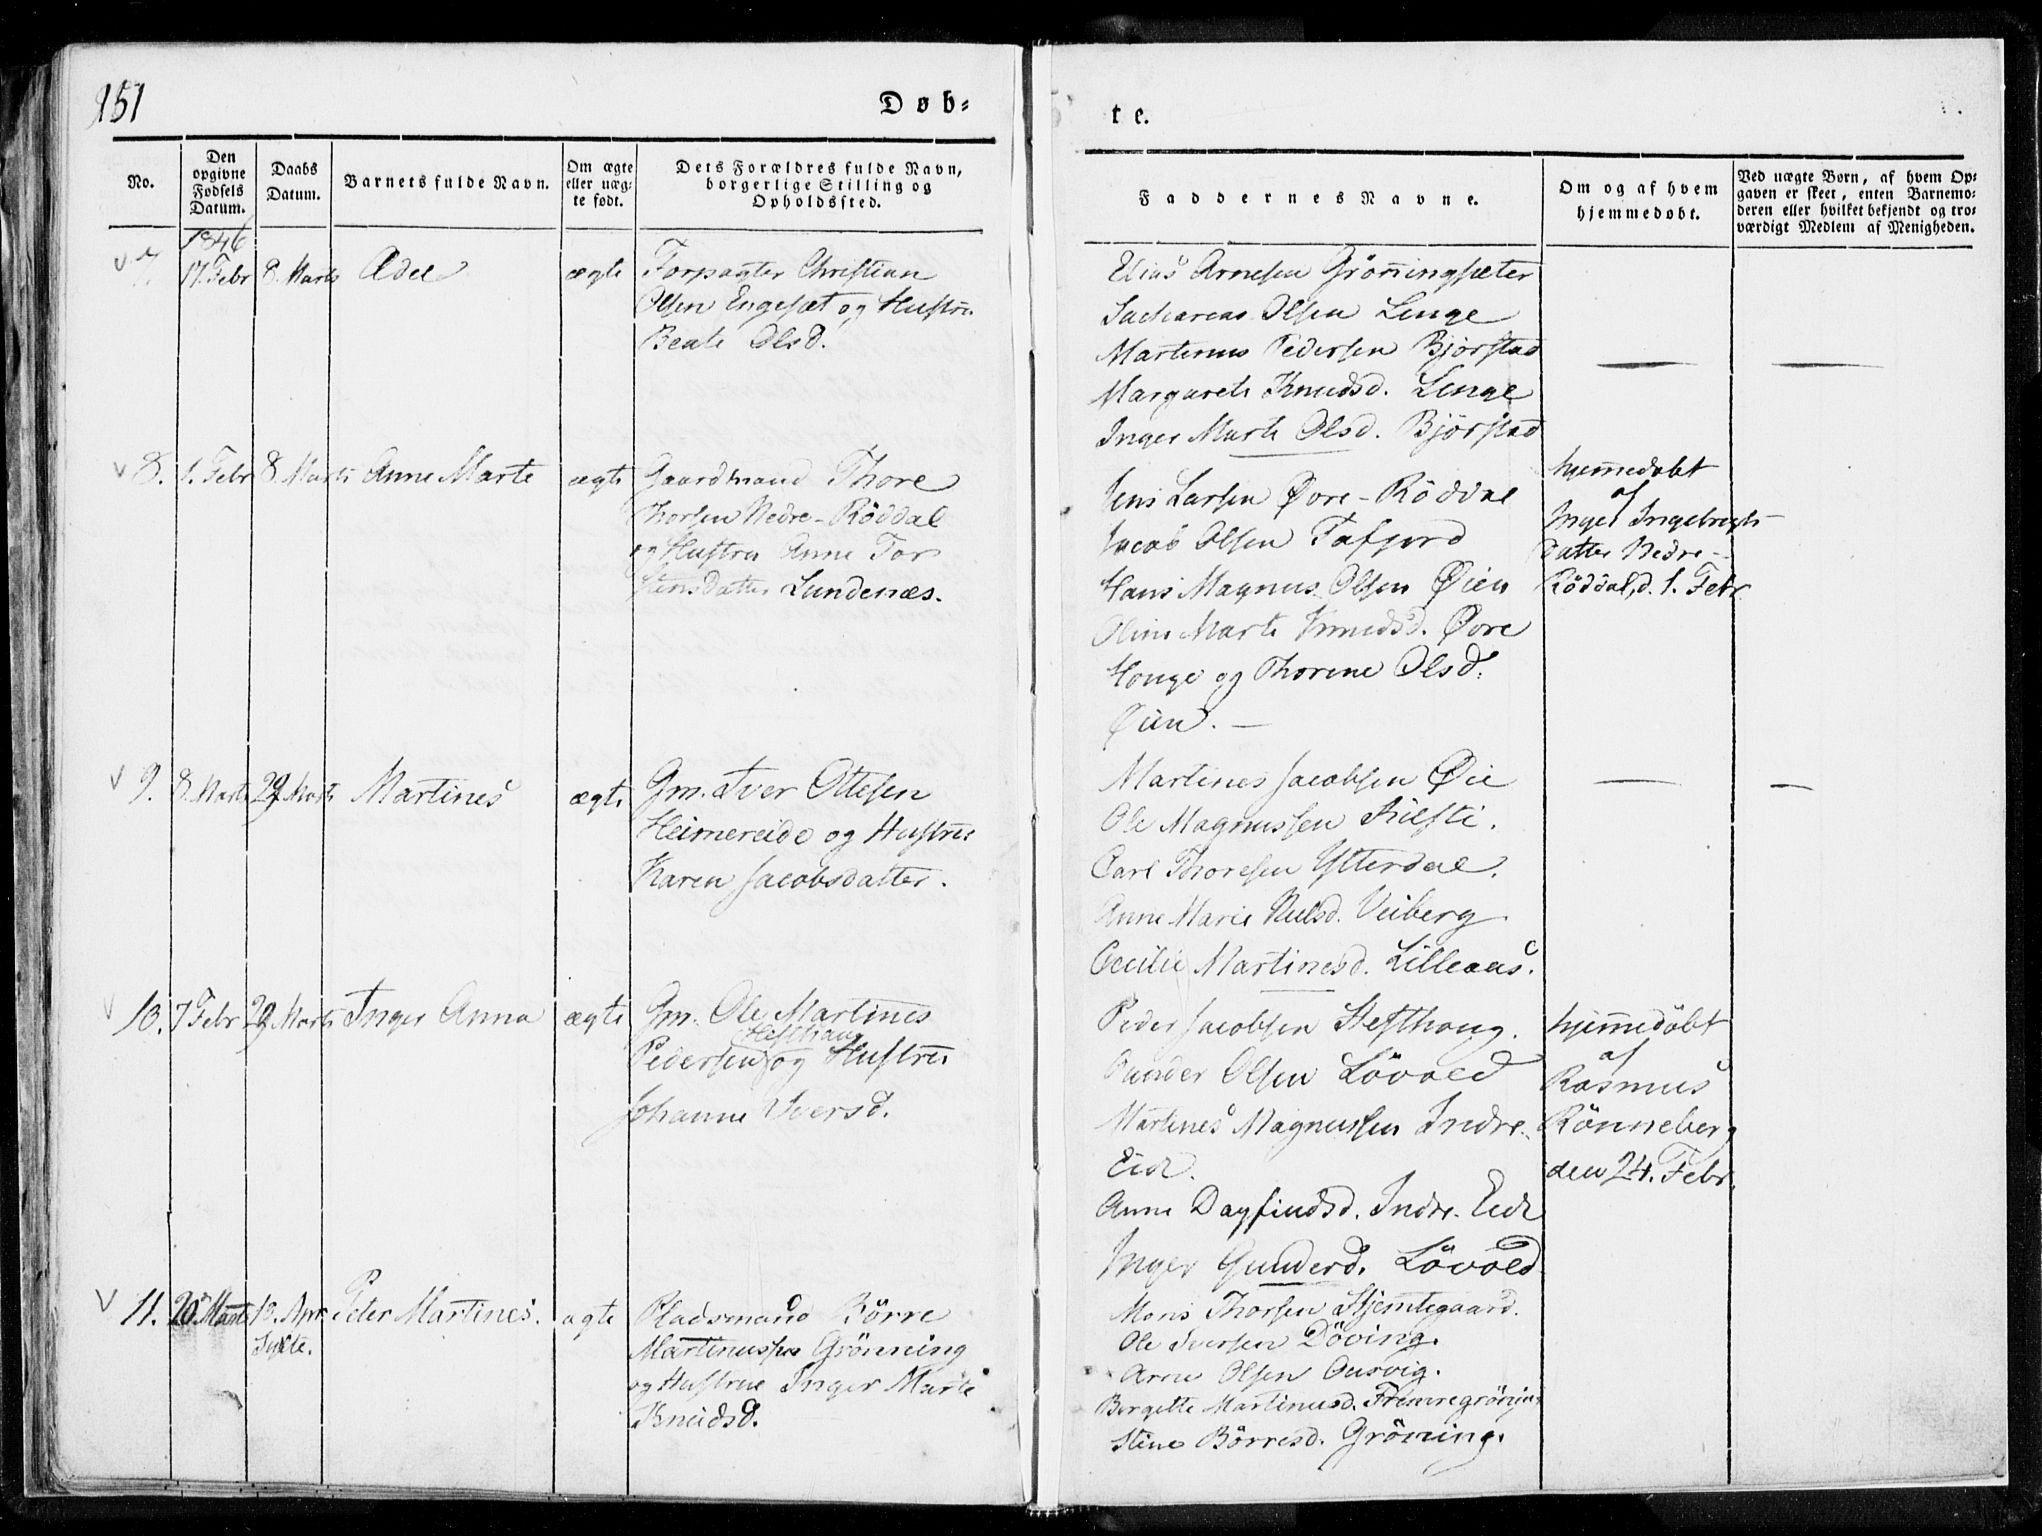 151
Døb=
te.
No.
Den opgivne Fødsels Datum.
Daabs Datum.
Barnets fulde Navn.
Om ægte eller uæg- te født.
Dets Forældres fulde Navn, borgerlige Stilling og Opholdssted.
Faddernes Navne.
Om og af hvem hjemmedøbt.
Ved uægte Børn, af hvem Op- gaven er skeet, enten Barnemo- deren eller hvilket bekjendt og tro- værdigt Medlem af Menigheden.
1846
7. 17. Febr 8. Marts Adel ægte Forpagter Christian
Olsen Engesæt og Hustru
Beate Olsd.
Elias Arnesen Grönningsæter
Sacharias Olsen Linge
Martinus Pedersen Bjørstad
Margarete Knudsd. Linge
Inger Marte Olsd. Bjørstad
8. 1. Febr 8 Marts Anne Marte ægte Gaardmand Thore
Thorsen Nedre-Röddal
og Hustru Anne Tor
stensdatter Lundenæs.
Jens Larsen Øvre-Röddal
Jacob Olsen Tafjord
Hans Magnus Olsen Øien
Oline Marte Knudsd. Øvre
Houge og Thorine Olsd.
Øien.
hjemmedøbt
af
Inger Ingebregts-
datter Nedre-
Röddal, d. 1. Febr
9. 8. Marts 29 Marts Martines ægte Gm. Iver Ottesen
Heimereide og Hustru
Karen Jacobsdatter.
Martines Jacobsen Øie
Ole Magnussen Kilsti.
Carl Thoresen Ytterdal.
Anne Marie Nielsd. Veiberg
Cecilie Martinesd. Lilleaas.
10. 7 Febr 29 Marts Inger Anna ægte Gm. Ole Martines
Hefthaug
Pedersen og Hustru
Johanne Iversd.
Peder Jacobsen Hefthoug.
Gunder Olsen Lövold
Martines Magnussen Indre-
Eide.
Anne Dagfindsd. Indre-Eide
Inger Gunderd. Lövold
hjemmedöbt
af
Rasmus
Rönneberg
den 24. Febr.
11. 20. Marts 13. Apr. Peter Martines. ægte Pladsmand Börre
Sylte.
Martinussen Grönning
og Hustrue Inger Marte
Knudsd.
Mons Thorsen Hjemtegaard.
Ole Iversen Döving.
Arne Olsen Ousvig.
Bergitte Martinusd. Fremregröning
Stine Börresd. Gröning.